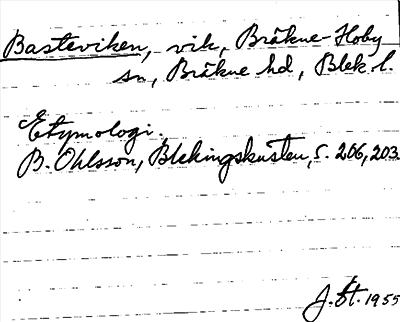 Basteviken, vik, Bräkne-Hoby
sn, Bräkne hd, Blek. l.
Etymologi.
B. Ohlsson, Blekingskusten, s. 206, 203
J. Öt. 1955